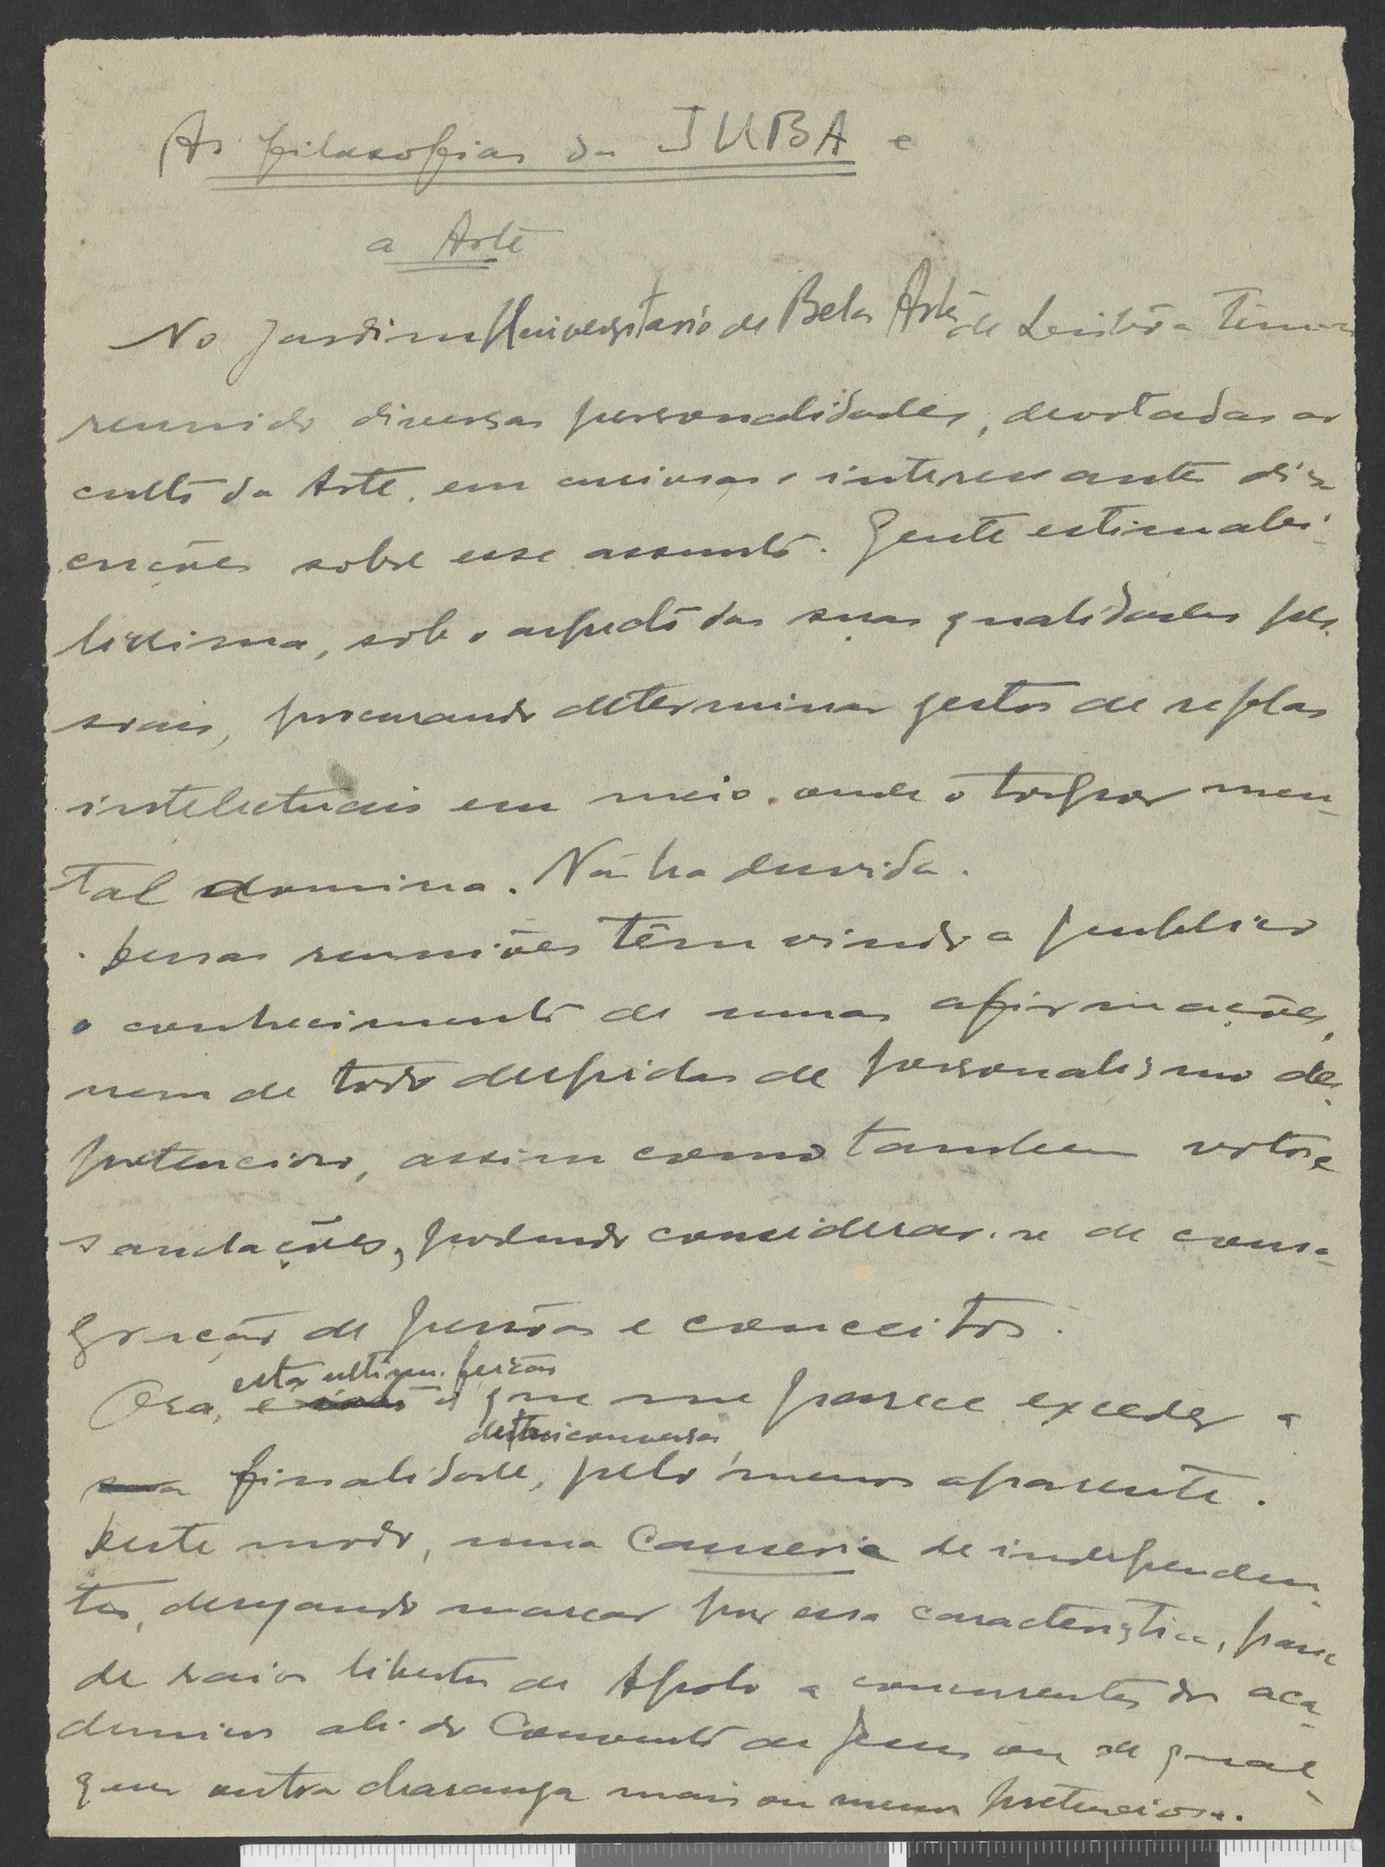 As filosofias da JUBA e
a Arte
No Jardim Universitario de Belas Artes de Lisbôa têm
reunido diversas personalidades, devotadas ao
culto da Arte, em curiosas e interessantes dis-
cuções sobre esse assunto. Gente estimabi-
lissima, sob o aspecto das suas qualidades pes-
soais, procurando determinar gestos de
intelectuais em meio, onde o torpor men-
tal domina. Não ha duvida.
Dessas reuniões têm vindo a publico
o conhecimento de umas afirmações,
nem de todo despidas de personalismo des-
pretencioso, assim como tambem votos e
saudações, podendo considerar-se de consa-
gração de pessoas e conceitos.
Ora, é esta ultima feição que me parece exceder a
finalidade, desta conversa, pelo menos aparente.
Deste modo, uma Causerie de independen-
tes, desejando marcar por essa caracteristica, passa
de raios libertos de Apolo a concorrentes dos aca-
demicos ali do Convento de Jesus ou de qual-
quer outra charanga mais ou menos pretenciosa.